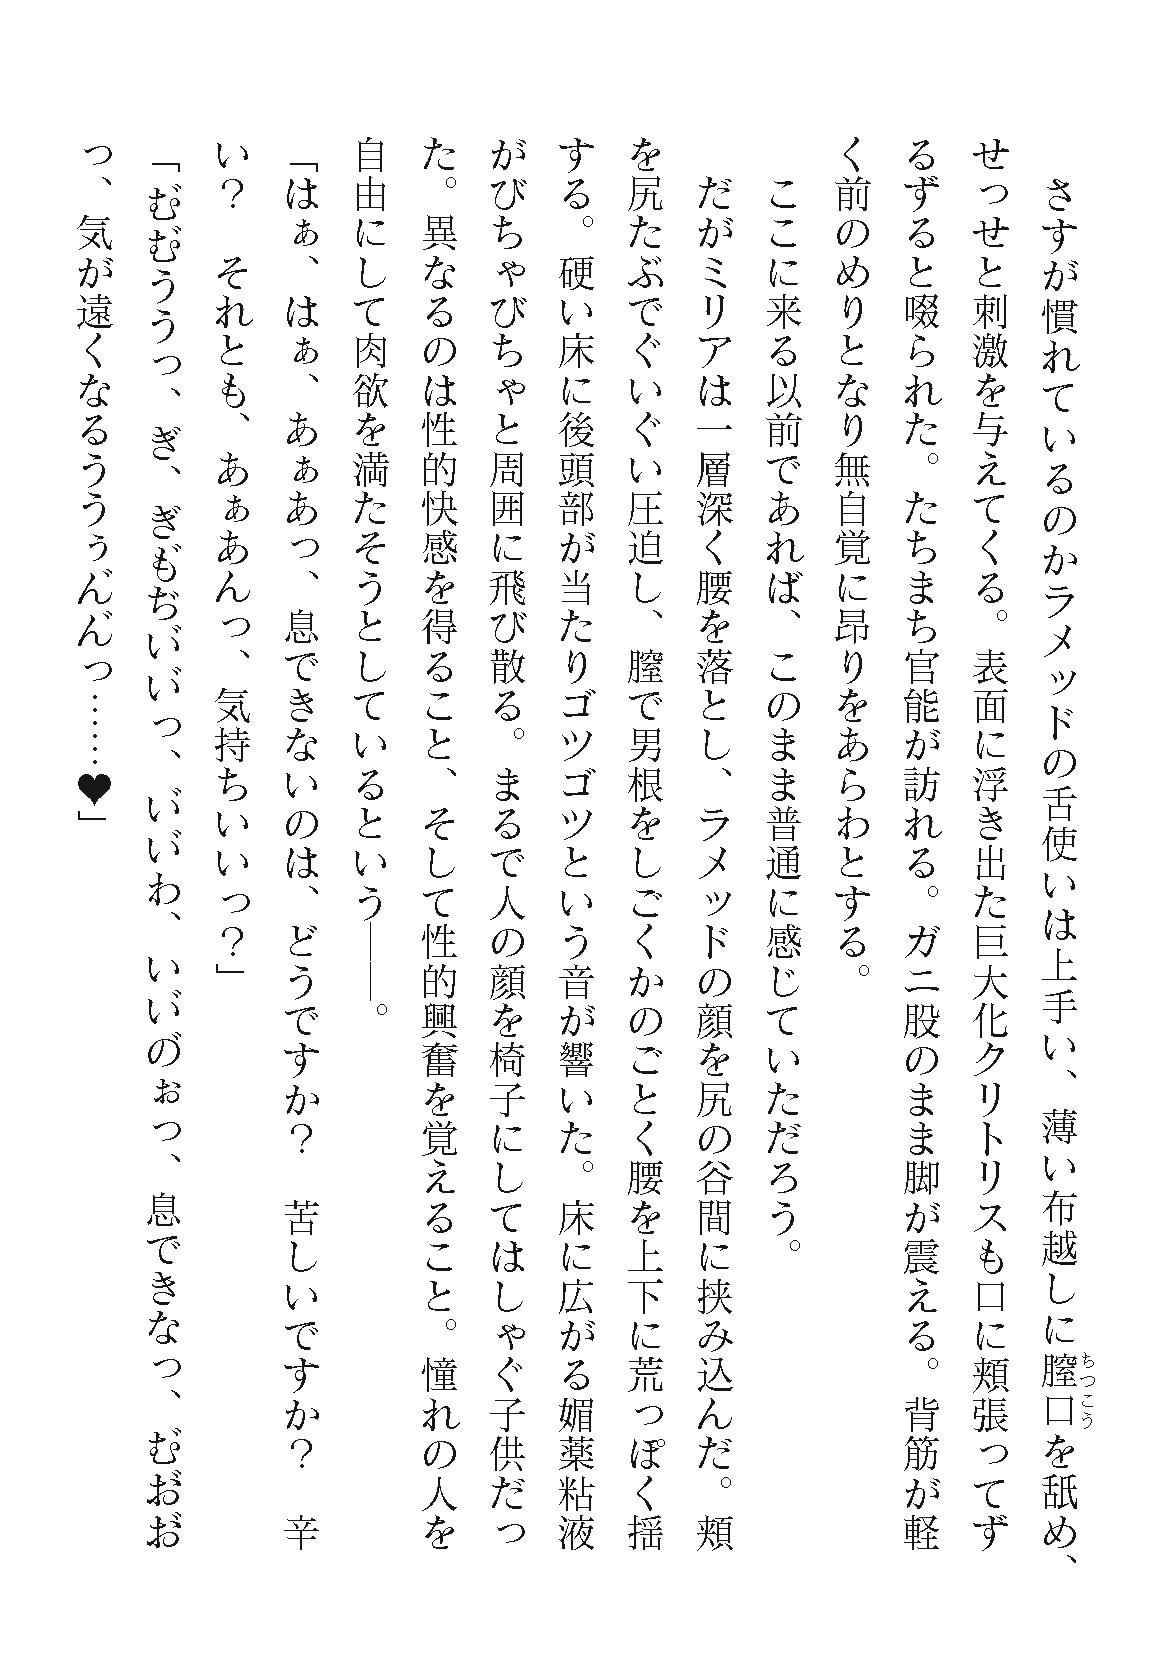 さすが慣れているのかラメッドの舌使いは上手い、薄い布越しに膣口を舐め、
ちつこう
せっせと刺激を与えてくる。表面に浮き出た巨大化クリトリスも口に頬張ってず
るずると啜られた。たちまち官能が訪れる。ガニ股のまま脚が震える。背筋が軽
く前のめりとなり無自覚に昂りをあらわとする。
ここに来る以前であれば、このまま普通に感じていただろう。
だがミリアは一層深く腰を落とし、ラメッドの顔を尻の谷間に挟み込んだ。頬
を尻たぶでぐいぐい圧迫し、膣で男根をしごくかのごとく腰を上下に荒っぽく揺
する。硬い床に後頭部が当たりゴツゴツという音が響いた。床に広がる媚薬粘液
がびちゃびちゃと周囲に飛び散る。まるで人の顔を椅子にしてはしゃぐ子供だっ
た。異なるのは性的快感を得ること、そして性的興奮を覚えること。憧れの人を
自由にして肉欲を満たそうとしているという――。
「はぁ、はぁ、あぁあっ、息できないのは、どうですか？　苦しいですか？　辛
い？　それとも、あぁあんっ、気持ちいいっ？」
「む゛む゛ううっ、ぎ、ぎも゛ぢい゛い゛っ、い゛い゛わ、い゛い゛の゛ぉっ、息できなっ、む゛お゛お゛
っ、気が遠くなるううぅん゛ん゛っ……♥」